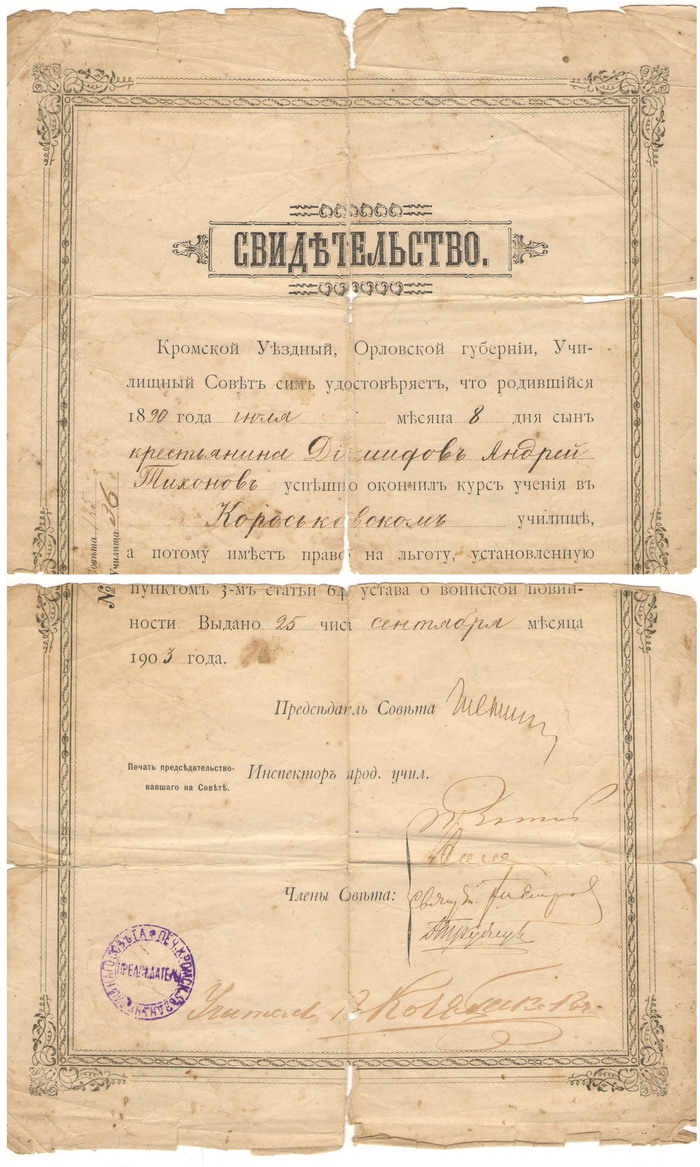 СВИДѢТЕЛЬСТВО.
Кромской Уѣздный, Орловской губерніи, Учи-
лищный Совѣтъ симъ удостовѣряетъ, что родившійся
1890 года іюля мѣсяца 8 дня сынъ
крестьянина Діомидовъ Андрей
Тихоновъ успѣшно окончил курсъ ученія въ
Короськовскомъ училищѣ,
а потому имѣетъ право на льготу, установленную
пунктомъ 3-мъ статьи 64 устава о воинской повин-
ности. Выдано 25 числ сентября мѣсяца
1903 года.
№ Совѣта
Училища 36
Предсѣдатль Совѣта
Печать предсѣдательство-
вавшаго на Совѣтѣ.
Инспекторъ арод. учил.
Члены Совѣта:
ПРЕДСѢДАТЕЛЬ
Учитель